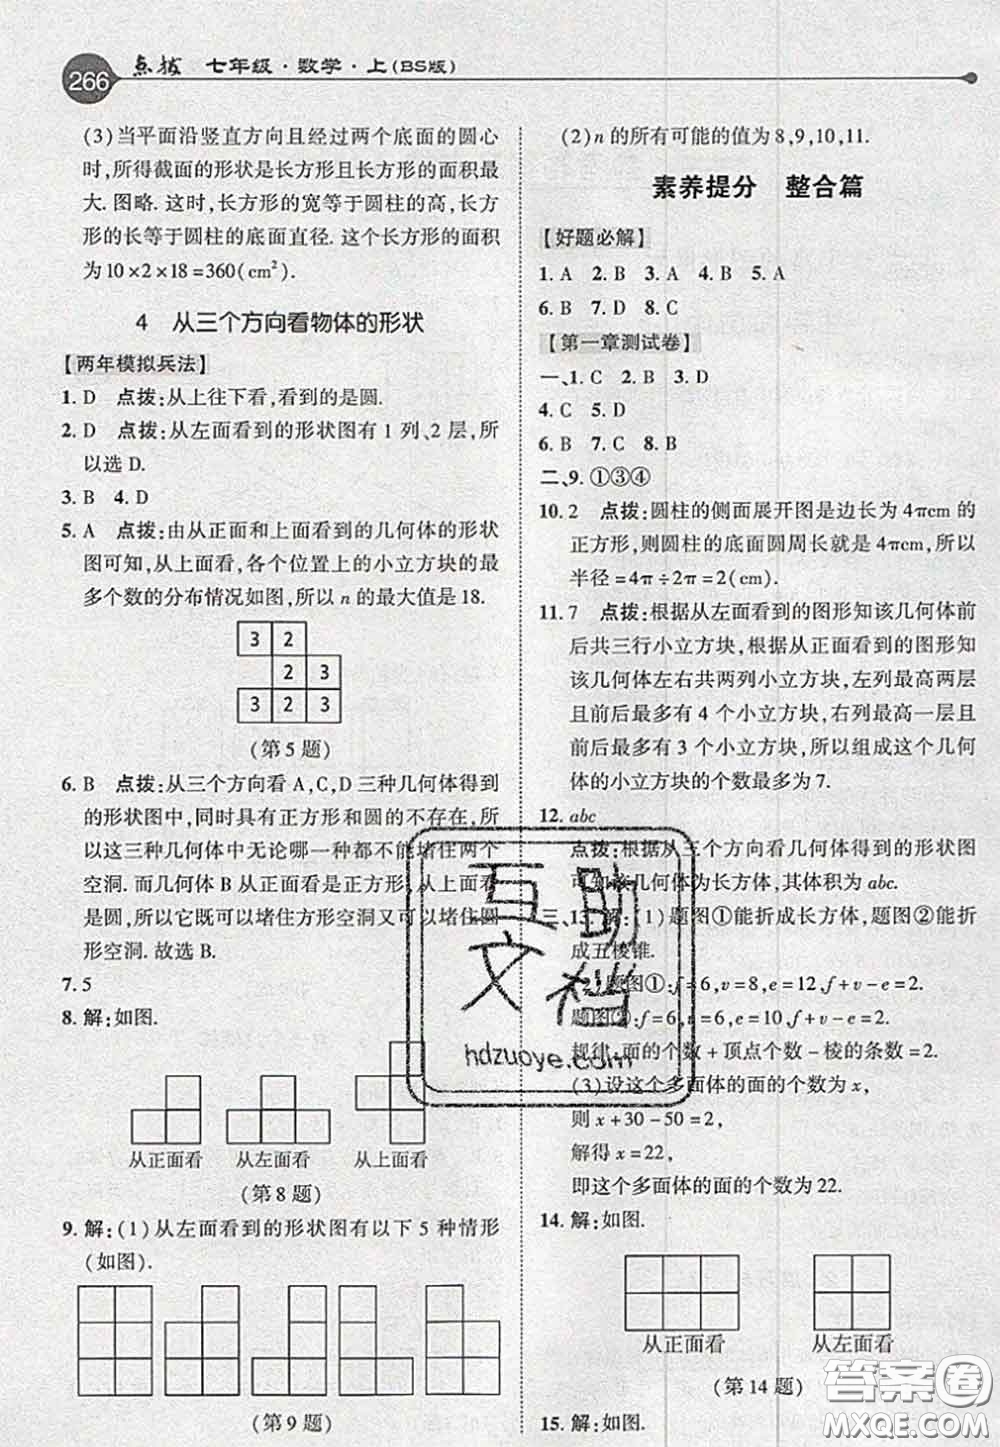 266 点拨 七年级·数学·上(BS版)
(3)当平面沿竖直方向且经过两个底面的圆心
时,所得截面的形状是长方形且长方形的面积最
大. 图略. 这时,长方形的宽等于圆柱的高,长方
形的长等于圆柱的底面直径. 这个长方形的面积
为10×2×18=360(cm²).
4 从三个方向看物体的形状
【两年模拟兵法】
1. D 点拨:从上往下看,看到的是圆.
2. D 点拨:从左面看到的形状图有1列、2层,所
以选D.
3. B 4. D
5. A 点拨:由从正面和上面看到的几何体的形状
图可知,从上面看,各个位置上的小立方块的最
多个数的分布情况如图,所以 n 的最大值是18.
3 2
2 3
3 2 3
(第5题)
6. B 点拨:从三个方向看A,C,D三种几何体得到
的形状图中,同时具有正方形和圆的不存在,所
以这三种几何体中无论哪一种都不能堵住两个
空洞. 而几何体B从正面看是正方形,从上面看
是圆,所以它既可以堵住方形空洞又可以堵住圆
形空洞. 故选B.
7. 5
8. 解:如图.
从正面看 从左面看 从上面看
(第8题)
9. 解:(1)从左面看到的形状图有以下5种情形
(如图).
(第9题)
(2)n 的所有可能的值为8,9,10,11.
素养提分 整合篇
【好题必解】
1. A 2. B 3. A 4. B 5. A
6. B 7. D 8. C
【第一章测试卷】
一、1. C 2. B 3. D
4. C 5. D
6. B 7. C 8. B
二、9. ①③④
10. 2 点拨:圆柱的侧面展开图是边长为4πcm的
正方形,则圆柱的底面圆周长就是4πcm,所以
半径=4π÷2π=2(cm).
11. 7 点拨:根据从左面看到的图形知该几何体前
后共三行小立方块,根据从正面看到的图形知
该几何体左右共两列小立方块,左列最高两层
且前后最多有4个小立方块,右列最高一层且
前后最多有3个小立方块,所以组成这个几何
体的小立方块的个数最多为7.
12. abc
点拨:根据从三个方向看几何体得到的形状图
可知该几何体为长方体,其体积为abc.
三、13. 解:(1)题图①能折成长方体,题图②能折
成五棱锥.
(2)题图①:f=6,v=8,e=12,f+v-e=2.
题图②:f=6,v=6,e=10,f+v-e=2.
规律:面的个数+顶点个数-棱的条数=2.
(3)设这个多面体的面的个数为x,
则 x+30-50=2,
解得 x=22,
即这个多面体的面的个数为22.
14. 解:如图.
从正面看 从左面看
(第14题)
15. 解:如图.
互助
文档
hdzuoye.com
答案圈
MXQE.COM